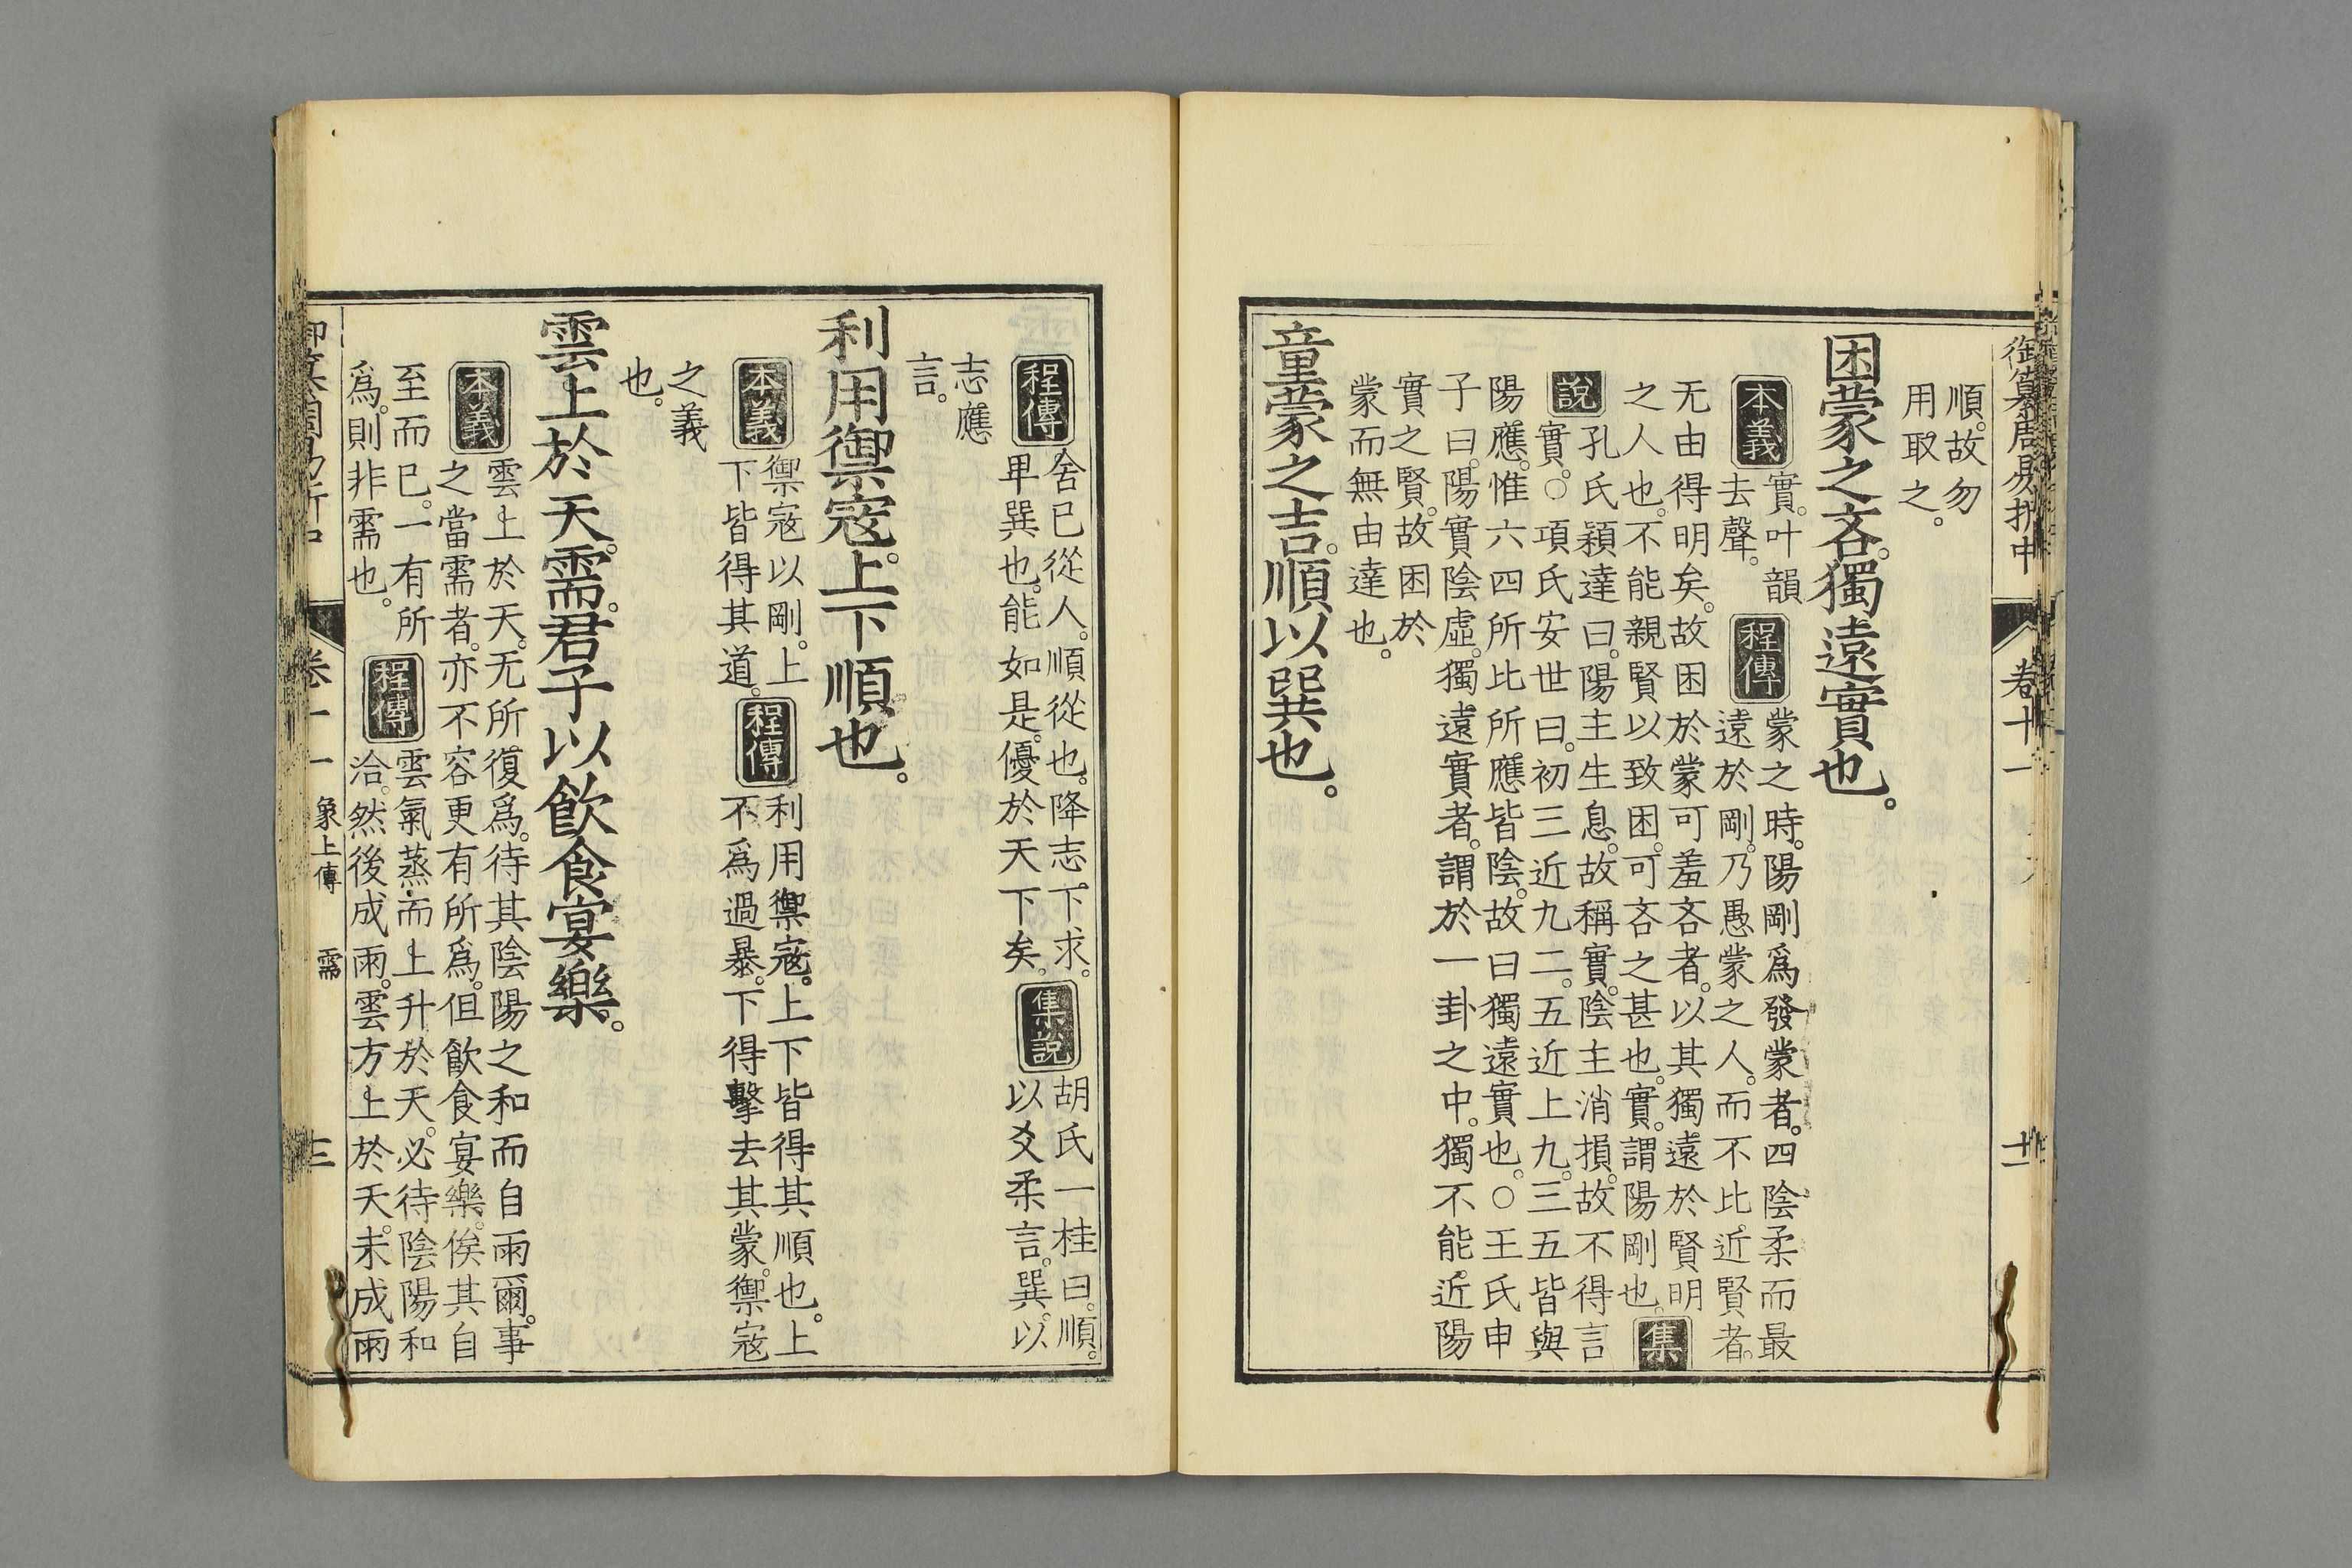 御纂周易折中 卷十一 十二
順。故勿
用取之。
困蒙之吝。獨遠實也。
本義 實。叶韻
去聲。
程傳 蒙之時。陽剛爲發蒙者。四陰柔而最
遠於剛。乃愚蒙之人。而不比。近賢者。
无由得明矣。故困於蒙可羞吝者。以其獨遠於賢明
之人也。不能親賢以致困。可吝之甚也。實。謂陽剛也。集
說 孔氏穎達曰。陽主生息。故稱實。陰主消損。故不得言
實。○項氏安世曰。初三近九二。五近上九。三五皆與
陽應。惟六四所比所應皆陰。故曰獨遠實也。○王氏申
子曰。陽實陰虛。獨遠實者。謂於一卦之中。獨不能。近陽
實之賢。故困於
蒙而無由達也。
童蒙之吉。順以巽也。
程傳 舍已從人。順從也。降志下求。
卑巽也。能如是。優於天下矣。
集說 胡氏一桂曰。順。
以爻柔言。巽。以
志應
言。
利用禦寇。上下順也。
本義 禦寇以剛。上
下皆得其道。
程傳 利用禦寇。上下皆得其順也。上
不爲過暴。下得擊去其蒙。禦寇
之義
也。
雲上於天。需。君子以飲食宴樂。
本義 雲上於天。无所復爲。待其陰陽之和而自雨爾。事
之當需者。亦不容更有所爲。但飲食宴樂。俟其自
至而已。一有所
爲。則非需也。
程傳 雲氣蒸而上升於天。必待陰陽和
洽。然後成雨。雲方上於天。未成雨
卷十一 象上傳 需